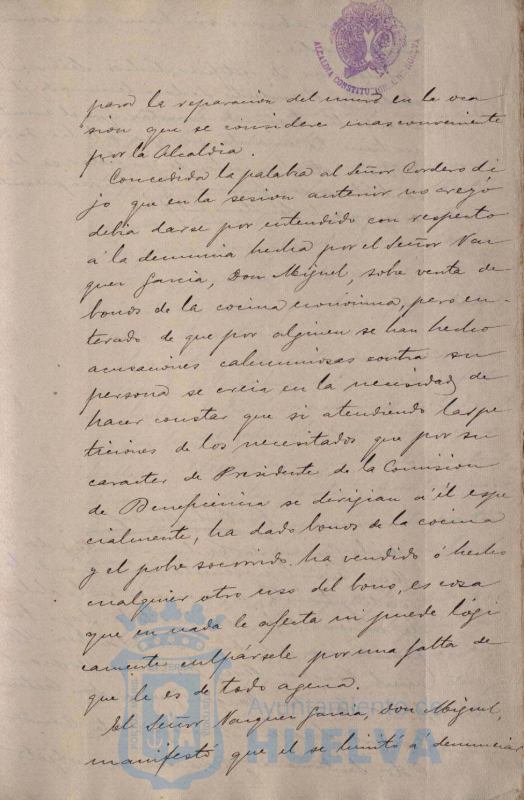 ALCALDIA CONSTITUCIONAL HUELVA
para la reparacion del muro en la oca
sion que se considere mas conveniente
por la Alcaldia.
Concedida la palabra al Señor Cordero di
jo que en la sesion anterior no creyó
debia darse por entendido con respecto
á la denuncia hecha por el Señor Vaz
quez Garcia, Don Miguel, sobre venta de
bonos de la cocina económica, pero en-
terado de que por alguien se han hecho
acusaciones calumniosas contra su
persona se creia en la necesidad de
hacer constar que si atendiendo las pe
ticiones de los necesitados que por su
caracter de Presidente de la Comision
de Beneficencia se dirigian á él espe
cialmente, ha dado bonos de la cocina
y el pobre socorrido ha vendido ó hecho
cualquier otro uso del bono, es cosa
que en nada le afecta ni puede lógi
camente culpársele por una falta de
que le es de todo agena.
El Señor Vazquez Garcia, Don Miguel,
manifestó que el se limitó á denunciar
Ayuntamiento de
HUELVA